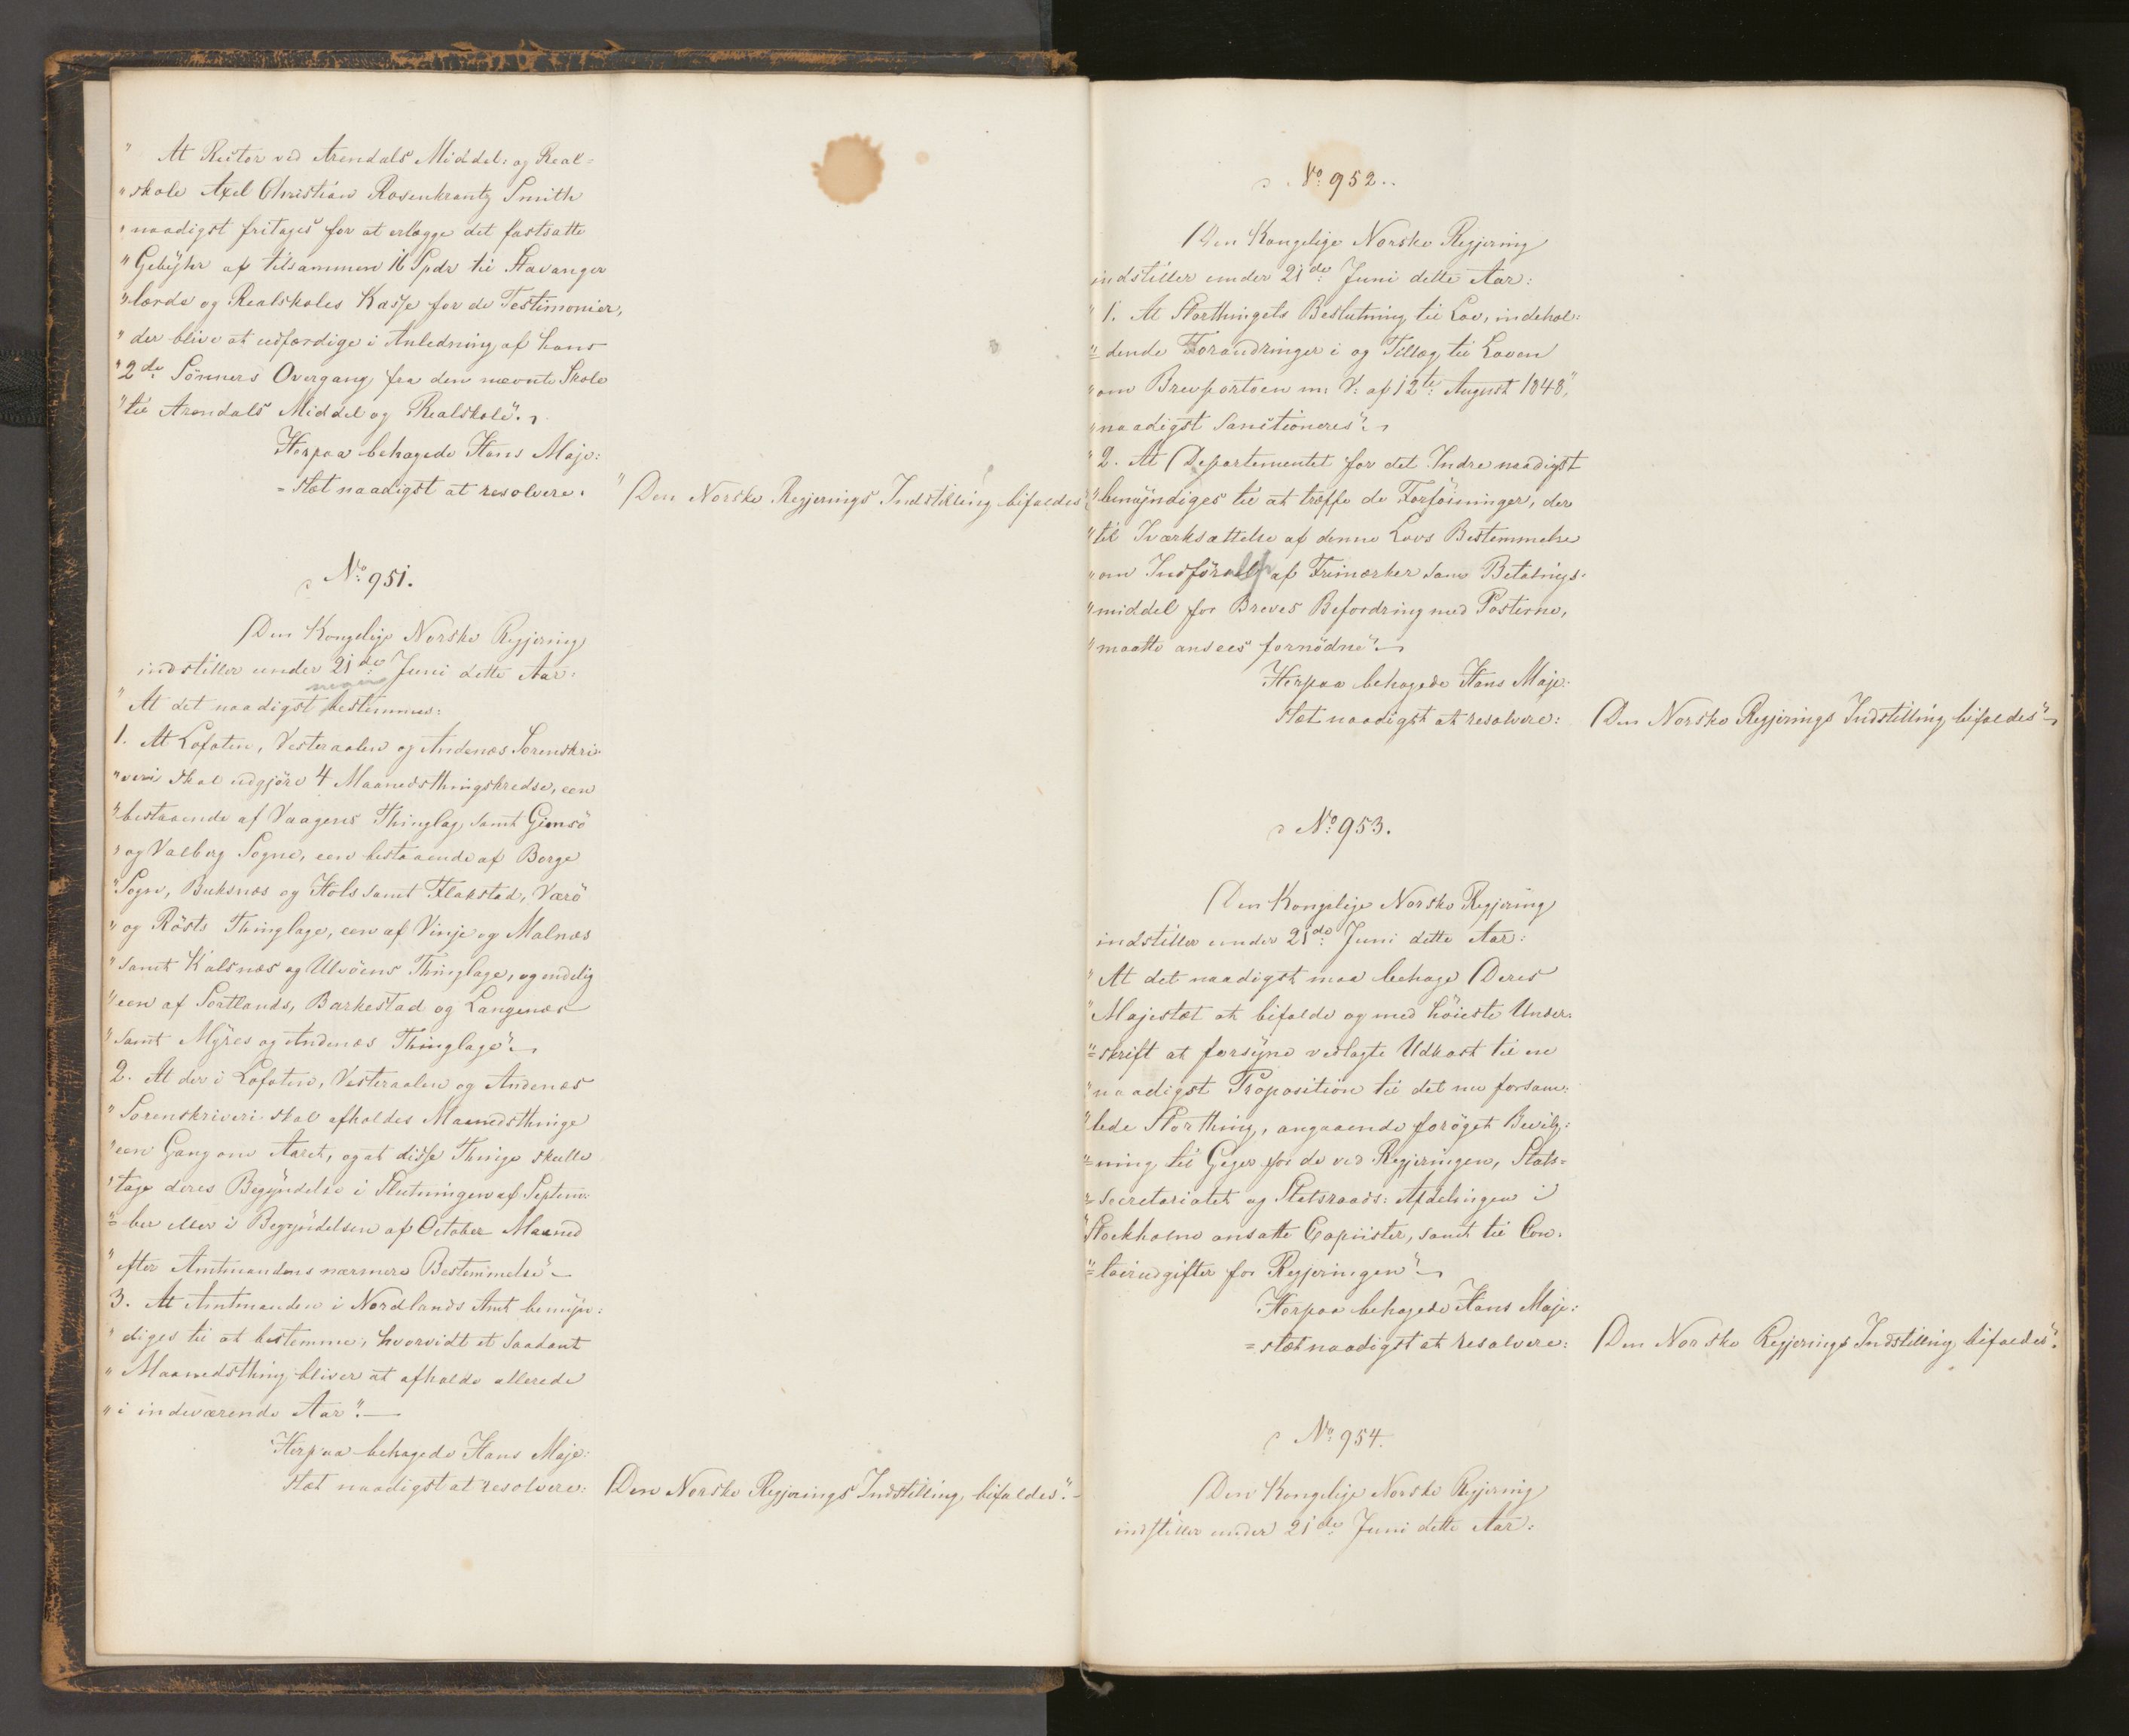 " At Rector ved Arendals Middel: og Real-
" skole Axel Christian Rosenkrantz Smith
" naadigst fritages for at erlægge det fastsatte
" Gebÿhr af tilsammen 16 Spdr til Stavanger
" lærde og Realskoles Kasse for de Testimonier,
" der blive at udfærdige i Anledning af hans
" 2de Sönners Overgang fra den nævnte Skole
" til Arendals Middel og Realskole".
Herpaa behagede Hans Maje:
=stæt naadigst at resolvere:
"Den Norske Regjerings Indstilling bifaldes"
No 951.
Den Kongelige Norske Regjering
indstiller under 21de Juni dette Aar:
" At det naadigst bestemmes:
1. At Lofoten, Vesteraalen og Andenæs Sorenskri-
" veri skal udgjöre 4 Maanedsthingskredse, een
" bestaaende af Vaagens Thinglag samt Gimsö
" og Valberg Sogne, een bestaaende af Borge
" Sogn, Buksnæs og Hols samt Flakstad, Værö
" og Rösts Thinglage, een af Vinje og Malnæs
" samt Kalsnæs og Ulvöens Thinglage, og endelig
" een af Sortlands, Barkestad og Langenæs
" samt Mÿres og Andenæs Thinglage".
2. At der i Lofoten, Vesteraalen og Andenæs
" Sorenskriveri skal afholdes Maanedsthinge
" een Gang om Aaret, og at disse Thinge skulle
" tage deres Begÿndelse i Slutningen af Septem-
"=ber eller i Begÿndelsen af October Maaned
" efter Amtmandens nærmere Bestemmelse"
3. At Amtmanden i Nordlands Amt bemÿn:
" diges til at bestemme, hvorvidt et saadant
" Maanedsthing bliver at afholde allerede
" i indeværende Aar".
Herpaa behagede Hans Maje:
stæt naadigst at resolvere:
Den Norske Regjerings Indstilling bifaldes".
No 952.
Den Kongelige Norske Regjering
indstiller under 21de Juni dette Aar:
" 1. At Storthingets Beslutning til Lov, indehol:
"=dende Forandringer i og Tillæg til Loven
" om Brevportoen m: V: af 12te August 1848,"
" naadigst Sanctioneres".
" 2. At Departementet for det Indre naadigst
" bemÿndiges til at træffe de Forföininger, der
" til Iværksættelse af denne Lovs Bestemmelse
" om Indförelse af Frimærker som Betalnings-
" middel for Breves Befordring med Posterne,
" maatte ansees fornödne".
Herpaa behagede Hans Maje-
stæt naadigst at resolvere:
Den Norske Regjerings Indstilling bifaldes".
No 953.
Den Kongelige Norske Regjering
indstiller under 21de Juni dette Aar:
" At det naadigst maa behage Deres
" Majestæt at bifalde og med höieste Under-
"=skrift at forsÿne vedlagte Udkast til en
" naadigst Proposition til det nu forsam-
" lede Storthing, angaaende foröget Bevilg:
"=ning til Gager for de ved Regjeringen, Stats=
"=Secretariatet og Statsraads: Afdelingen i
" Stockholm ansatte Copiister, samt til Con-
"=toirudgifter for Regjeringen".
Herpaa behagede Hans Maje:
=stæt naadigst at resolvere:
Den Norske Regjerings Indstilling bifaldes".
No 954.
Den Kongelige Norske Regjering
indstiller under 21de Juni dette Aar: